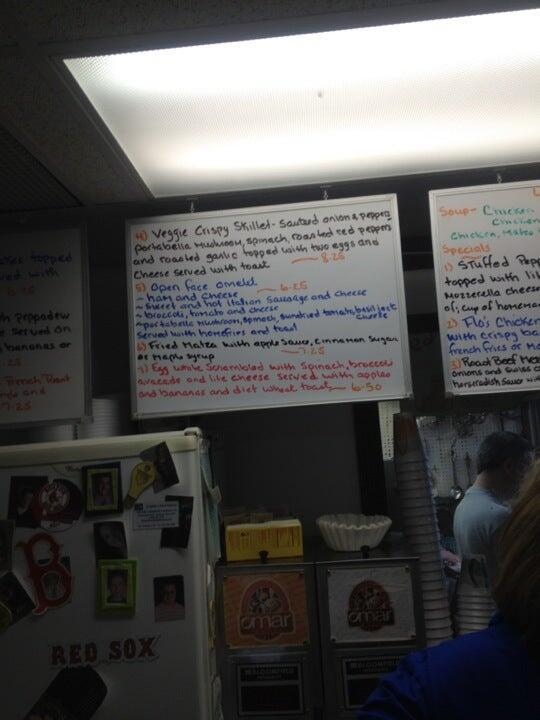 topped
ved with
6.25
th peppadew
re Served on
bananas or
.25
French Toast
and
7.25
4) Veggie Crispy Skillet - Sauteed onions, peppers
Portabella Mushroom, spinach, roasted red peppers
and roasted garlic topped with two eggs and
Cheese served with toast 8.25
5) Open face omelet 6.25
~ ham and cheese
~ Sweet and hot Italian Sausage and cheese
~ broccoli, tomato and cheese
~ portabella mushroom, spinach, sundried tomato, basil jack cheese
Served with homefries and toast
6) Fried Matza with apple Sauce, Cinnamon Sugar
or Maple syrup 7.25
7) Egg white Scrambled with Spinach, broccoli
avocado and lite cheese served with apples
and bananas and diet wheat toast 6.50
Soup - Chicken
Chicken
Chicken, Matza
Specials
1) Stuffed Pepp
topped with
Mozzerella cheese
of; cup of homema
2) Flo's Chicken
with crispy
french fries or
3) Roast Beef
onions and swiss
horseradish Sauce
B
RED SOX
omar
omar
BLOOMFIELD
BLOOMFIELD